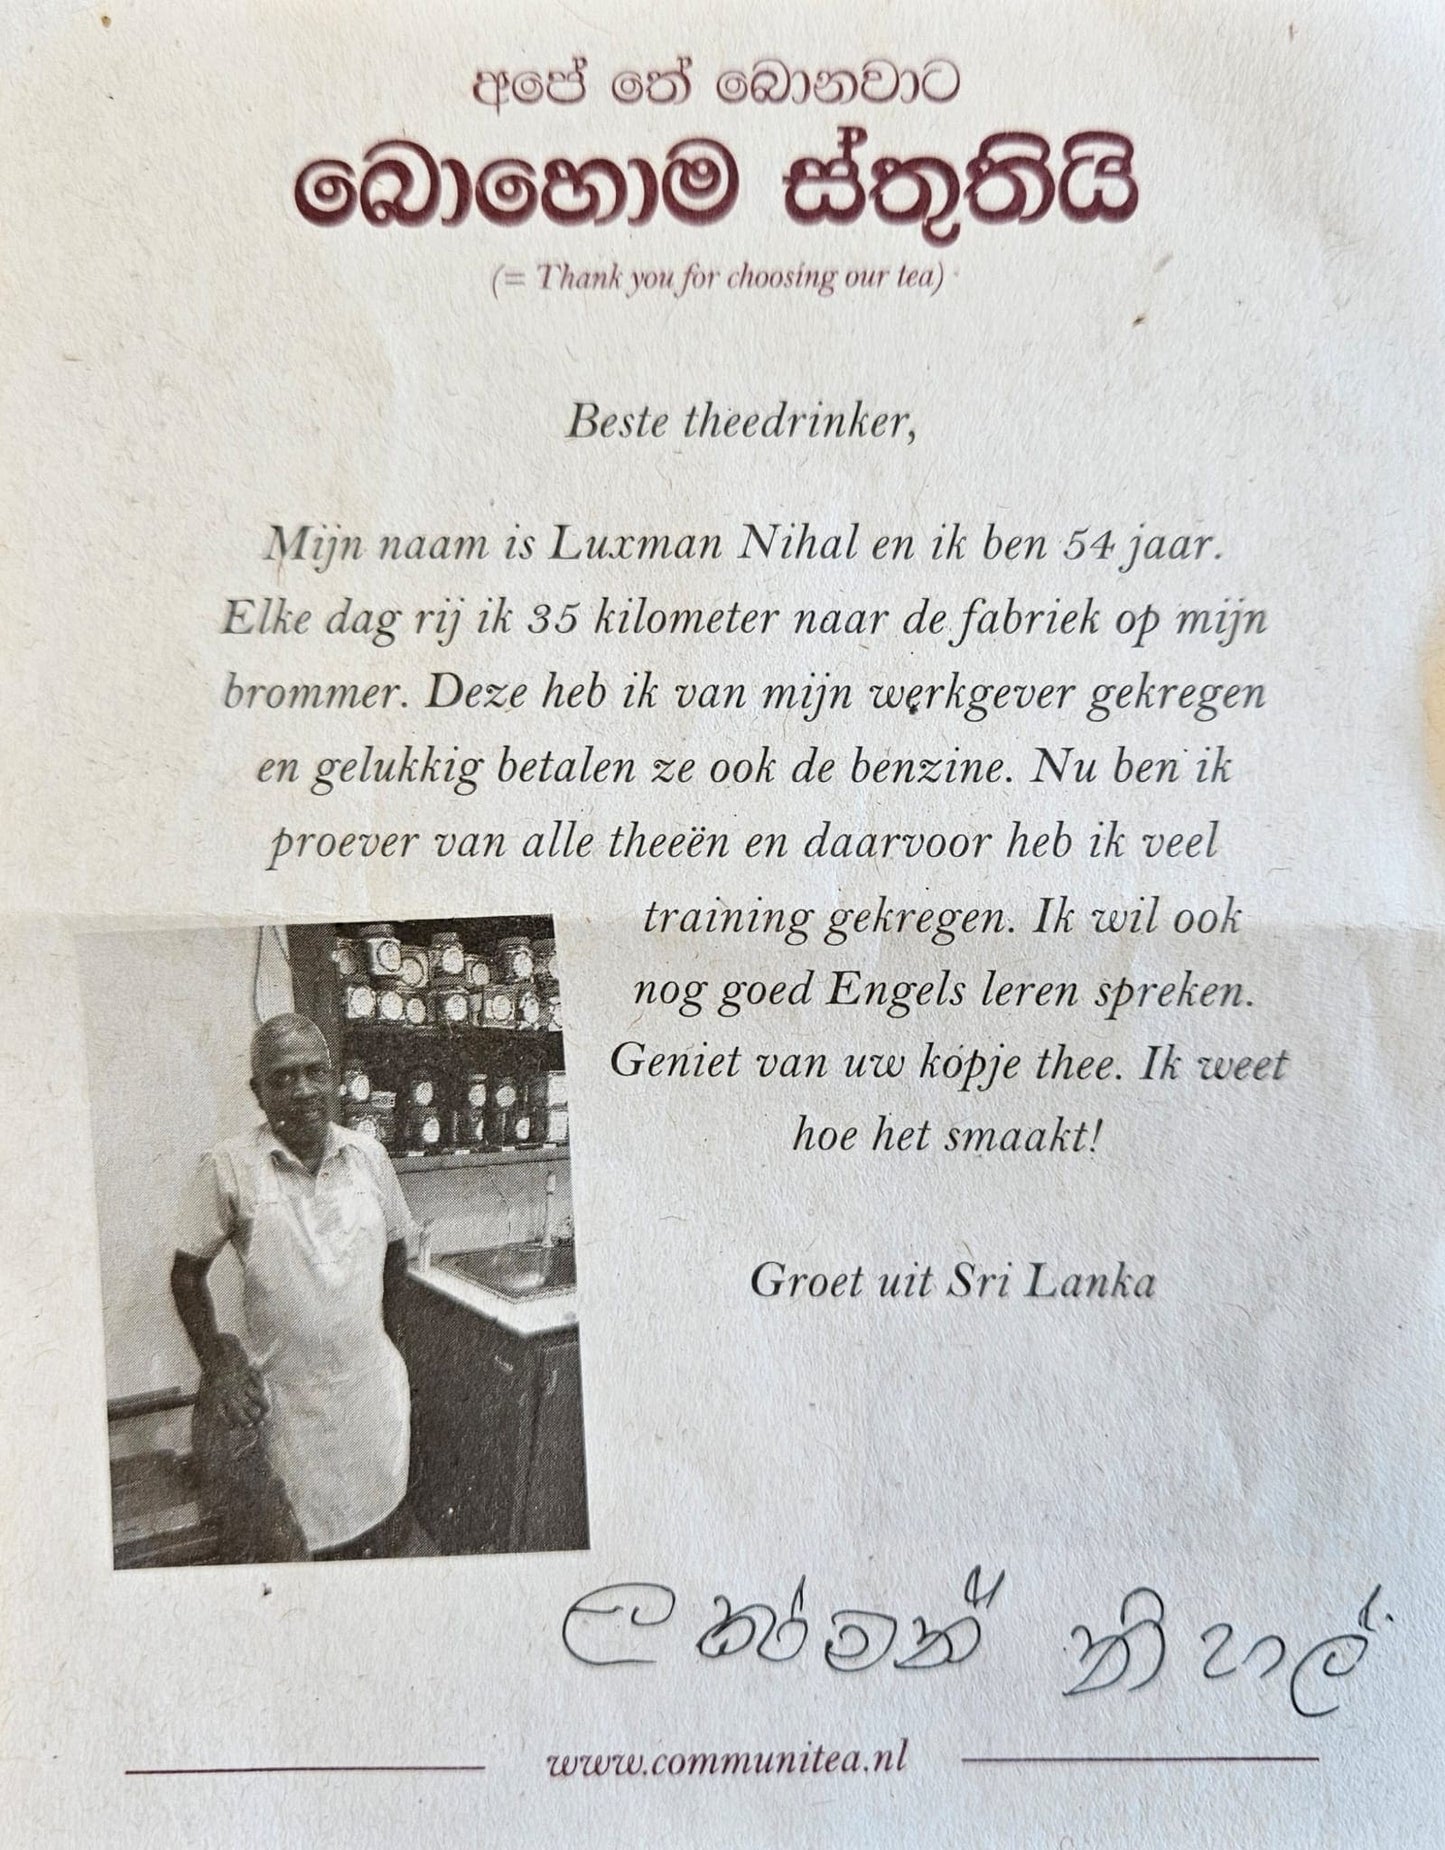 අපේ තේ බොනවාට
බොහොම ස්තුතියි
(= Thank you for choosing our tea)
Beste theedrinker,
Mijn naam is Luxman Nihal en ik ben 54 jaar.
Elke dag rij ik 35 kilometer naar de fabriek op mijn
brommer. Deze heb ik van mijn werkgever gekregen
en gelukkig betalen ze ook de benzine. Nu ben ik
proever van alle theeën en daarvoor heb ik veel
training gekregen. Ik wil ook
nog goed Engels leren spreken.
Geniet van uw kopje thee. Ik weet
hoe het smaakt!
Groet uit Sri Lanka
නිහාල්
www.communitea.nl